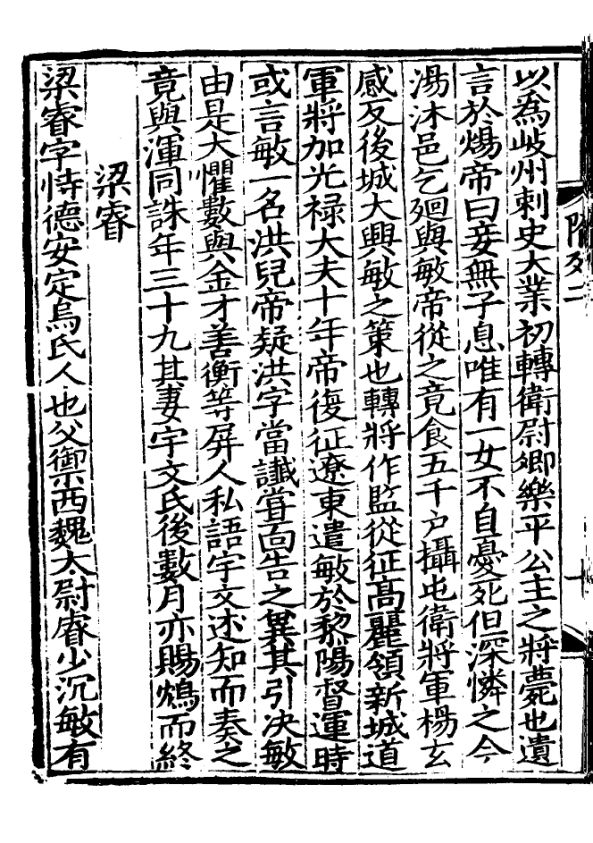 以為岐州刺史大業初轉衛尉卿樂平公主之將薨也遺
言於煬帝曰妾無子息唯有一女不自憂死但深憐之今
湯沐邑乞廻與敏帝從之竟食五千户攝屯衛將軍楊玄
感反後城大興敏之策也轉將作監從征高麗領新城道
軍將加光禄大夫十年帝復征遼東遣敏於黎陽督運時
或言敏一名洪兒帝疑洪字當讖甞面告之異其引决敏
由是大懼數與金才善衡等屏人私語宇文述知而奏之
竟與渾同誅年三十九其妻宇文氏後數月亦賜鴆而終
梁睿
梁睿字恃德安定烏氏人也父禦西魏太尉睿少沉敏有